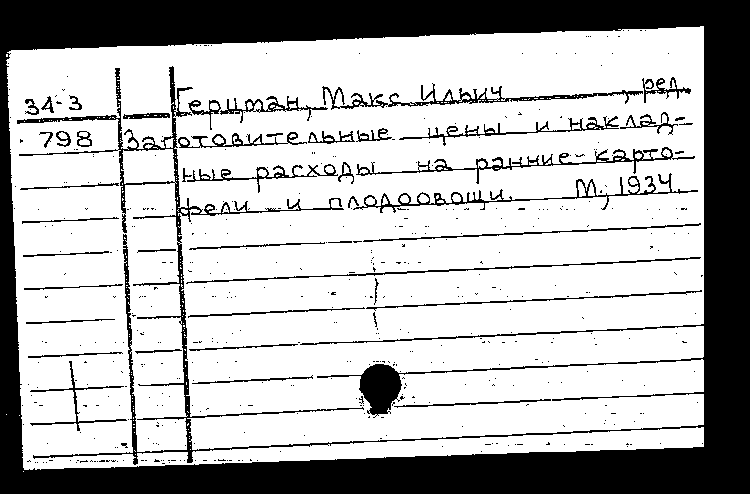 34-3 Герцман, Макс Ильич , ред.
798 Заготовительные цены и наклад-
ные расходы на ранние-карто-
фели и плодоовощи. М., 1934.